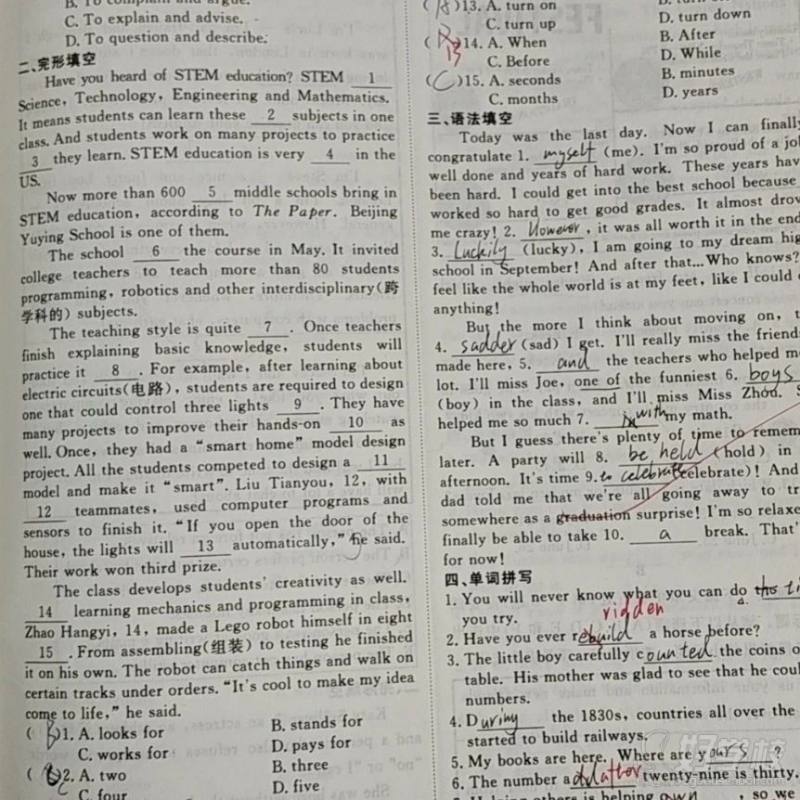 B. To complain and argue.
C. To explain and advise.
D. To question and describe.
二、完形填空
Have you heard of STEM education? STEM 1
Science, Technology, Engineering and Mathematics.
It means students can learn these 2 subjects in one
class. And students work on many projects to practice
3 they learn. STEM education is very 4 in the
US.
Now more than 600 5 middle schools bring in
STEM education, according to The Paper. Beijing
Yuying School is one of them.
The school 6 the course in May. It invited
college teachers to teach more than 80 students
programming, robotics and other interdisciplinary(跨
学科的) subjects.
The teaching style is quite 7. Once teachers
finish explaining basic knowledge, students will
practice it 8. For example, after learning about
electric circuits(电路), students are required to design
one that could control three lights 9. They have
many projects to improve their hands-on 10 as
well. Once, they had a “smart home” model design
project. All the students competed to design a 11
model and make it “smart”. Liu Tianyou, 12, with
12 teammates, used computer programs and
sensors to finish it. “If you open the door of the
house, the lights will 13 automatically,” he said.
Their work won third prize.
The class develops students’ creativity as well.
14 learning mechanics and programming in class,
Zhao Hangyi, 14, made a Lego robot himself in eight
15. From assembling(组装) to testing he finished
it on his own. The robot can catch things and walk on
certain tracks under orders. “It's cool to make my idea
come to life,” he said.
(B)1. A. looks for B. stands for
C. works for D. pays for
( )2. A. two B. three
C. four D. five
(A)13. A. turn on
C. turn up D. turn down
( B )14. A. When B. After
C. Before D. While
(C)15. A. seconds B. minutes
C. months D. years
三、语法填空
Today was the last day. Now I can finally
congratulate 1. myself (me). I'm so proud of a jo
well done and years of hard work. These years hav
been hard. I could get into the best school because
worked so hard to get good grades. It almost drov
me crazy! 2. However, it was all worth it in the end
3. Luckily (lucky), I am going to my dream hig
school in September! And after that…Who knows?
feel like the whole world is at my feet, like I could
anything!
But the more I think about moving on, t
4. sadder (sad) I get. I'll really miss the friends
made here, 5. and the teachers who helped me
lot. I'll miss Joe, one of the funniest 6. boys
(boy) in the class, and I'll miss Miss Zhou. S
helped me so much 7. with my math.
But I guess there's plenty of time to remem
later. A party will 8. be held (hold) in
afternoon. It's time 9. to celebrate (celebrate)! And
dad told me that we're all going away to tr
somewhere as a graduation surprise! I'm so relaxe
finally be able to take 10. a break. That'
for now!
四、单词拼写
1. You will never know what you can do
you try.
ridden
2. Have you ever rebuild a horse before?
3. The little boy carefully counted the coins o
table. His mother was glad to see that he coul
numbers.
4. During the 1830s, countries all over the
started to build railways.
5. My books are here. Where are yours?
6. The number a twenty-nine is thirty.
own, so we